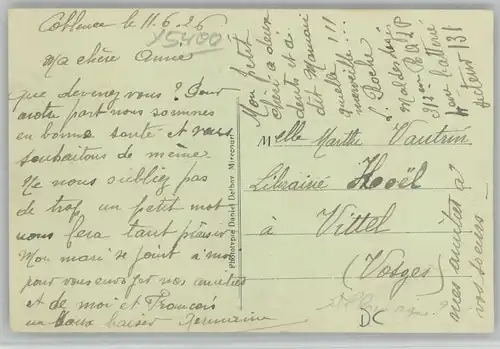 Coblence le 11.6.26
Ma chère Anna
que devenez vous? Pour
notre part nous sommes
en bonne santé et vous
souhaitons de même
Ne nous oubliez pas
de trop un petit mot
nous fera tant plaisir
Mon mari se joint à moi
pour vous envoyer nos amitiés
et de moi et François
un doux baiser Germaine
X5400
Mon petit
chéri a deux
dents et a
dit Maman
quelle
merveille!!!!
L. Roche
312e batterie
secteur 131
Phototypie Daniel Delboy Mirecourt
Melle Marthe Vautrin
Librairie Hoël
à Vittel
(Vosges)
mes amitiés à
vos soeurs
DC